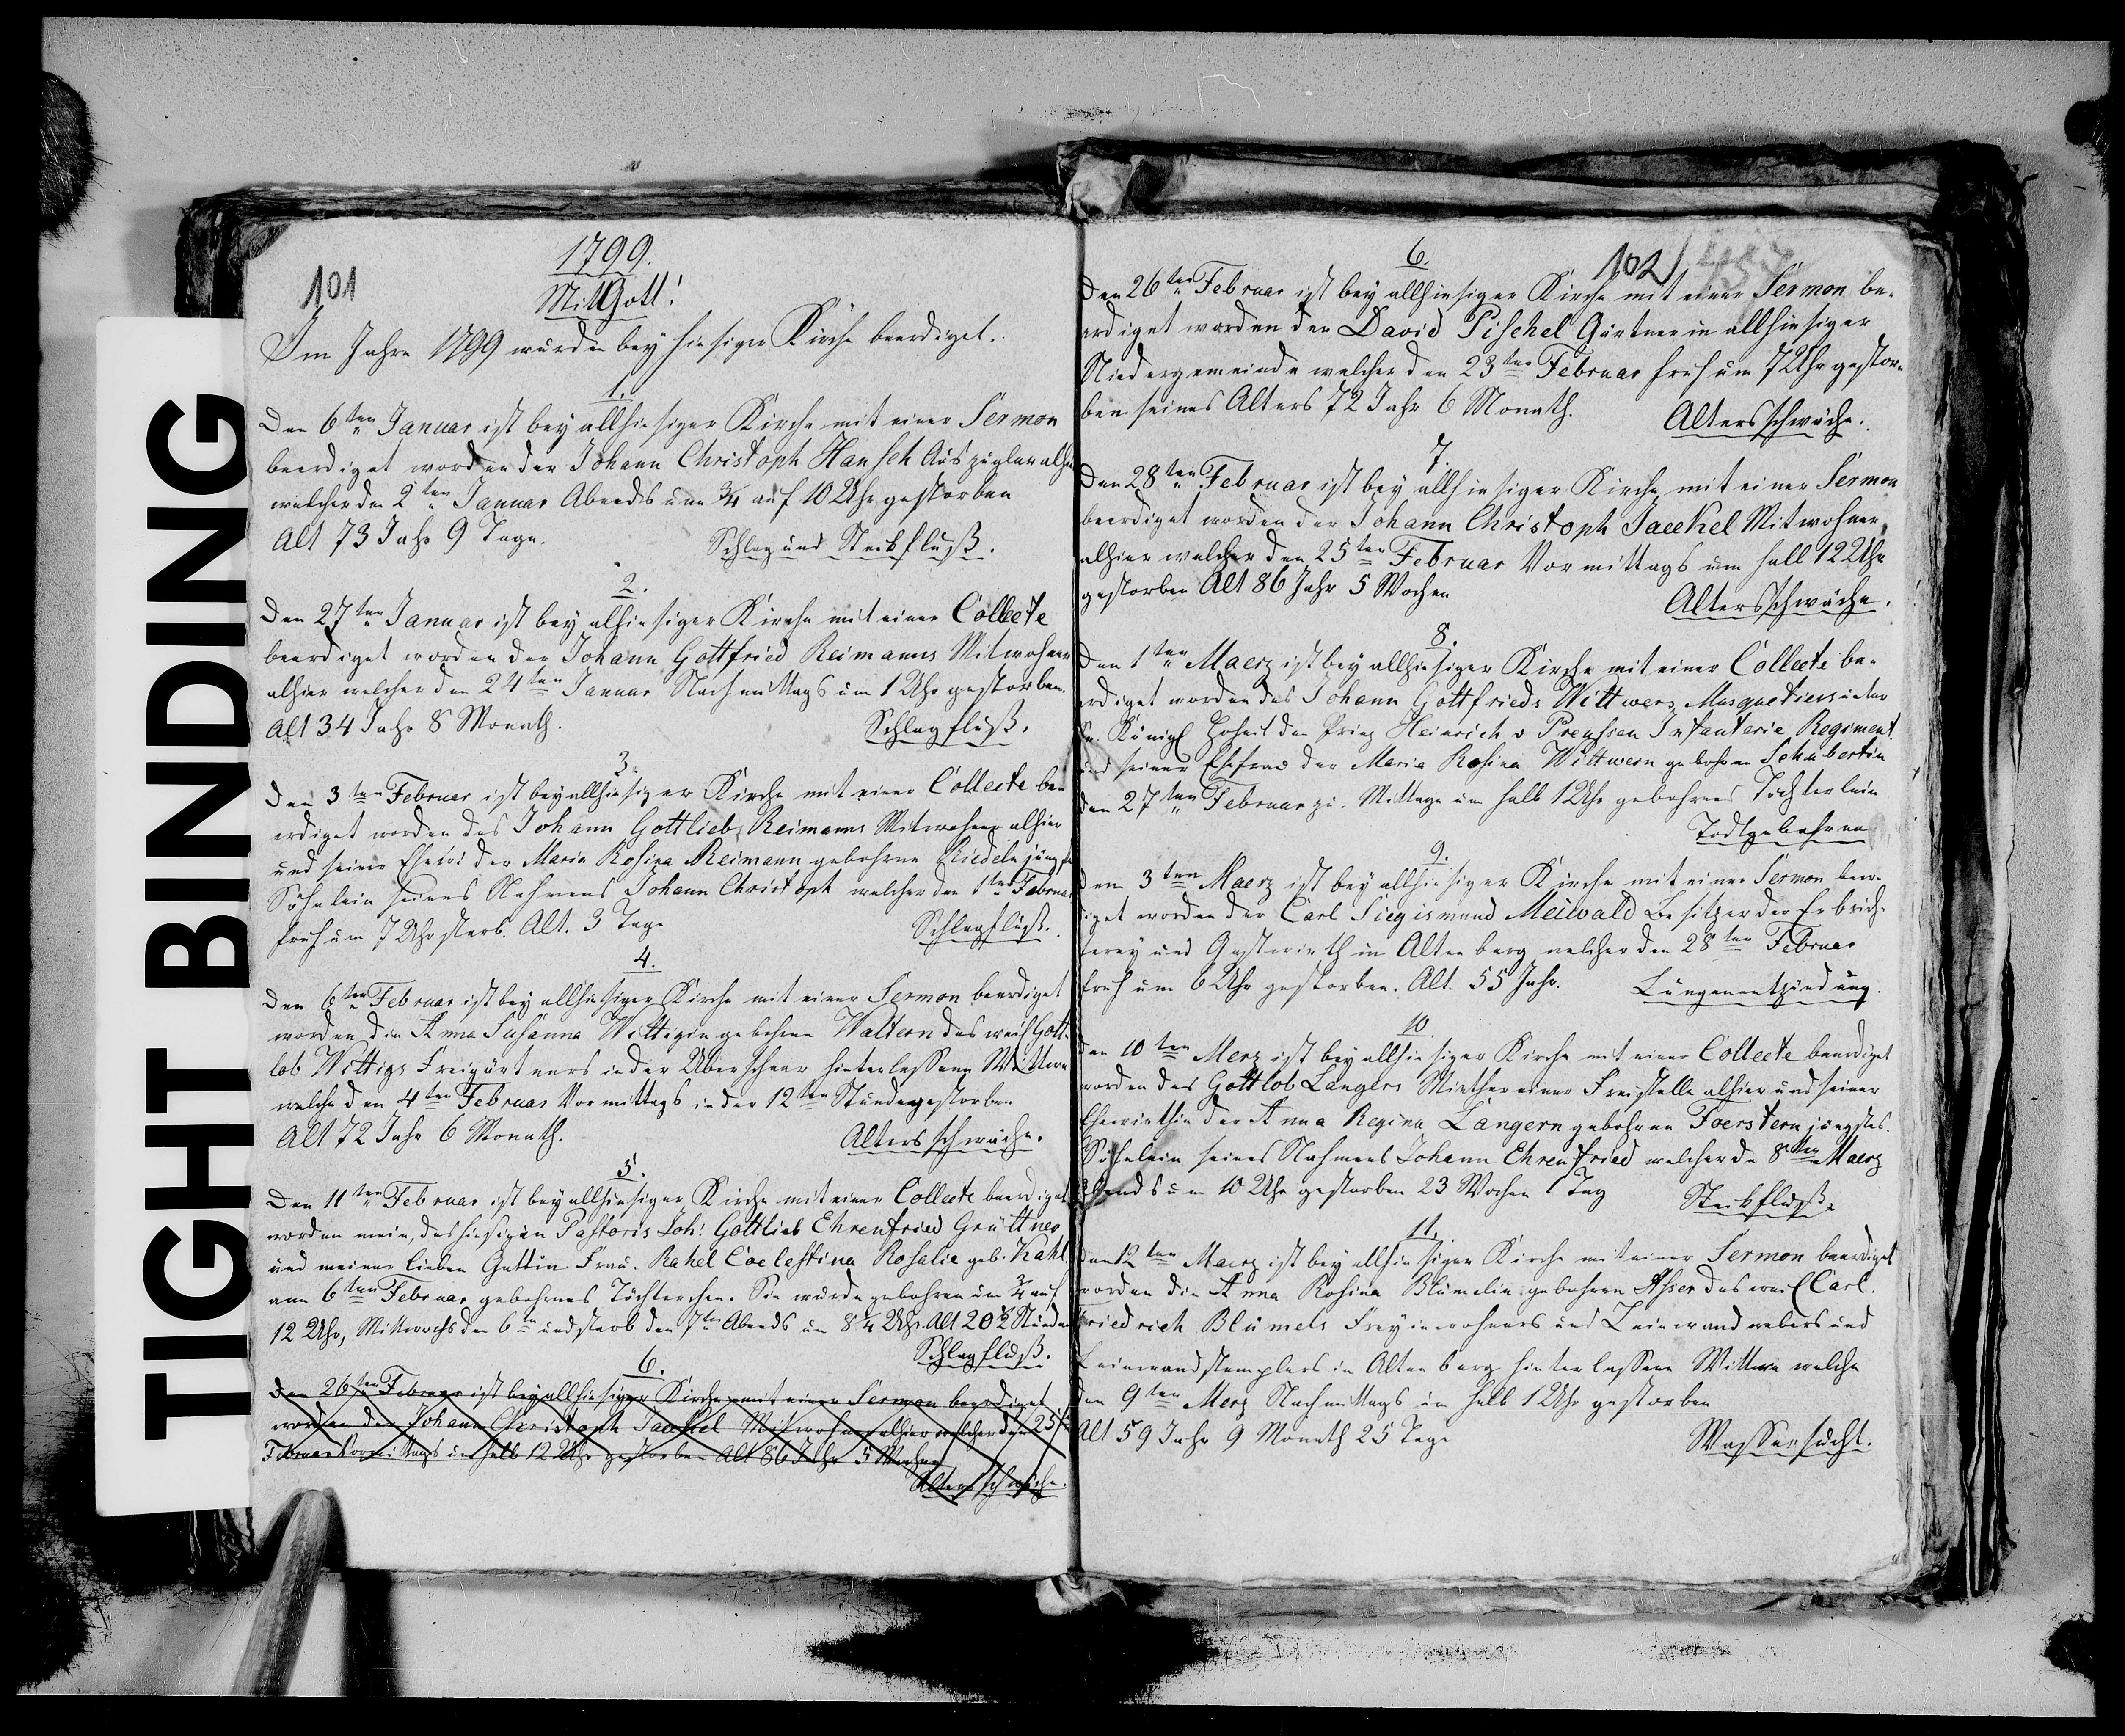 TIGHT BINDING
101
1799.
Mit Gott!
Im Jahre 1799 wurden bey hiesiger Kirche beerdiget.
1.
Den 6ten Januar ist bey allhiesiger Kirche mit einer Sermon
beerdiget worden der Johann Christoph Hansch Auszügler alhier
welcher den 2ten Januar Abends um 3/4 auf 10 Uhr gestorben
Alt 73 Jahr 9 Tage.
Schlag und Steckfluß.
2.
Den 27ten Januar ist bey alhiesiger Kirche mit einer Collecte
beerdiget worden der Johann Gottfried Reimanns Mitwohner
alhier welcher den 24ten Januar Nachmittags um 1 Uhr gestorben.
Alt 34 Jahr 8 Monath.
Schlagfluß.
3.
Den 3ten Februar ist bey allhiesiger Kirche mit einer Collecte be
erdiget worden des Johann Gottlieb Reimanns Mitwohner alhier
und seiner Ehe der Maria Rosina Reimann gebohrne
Söhnlein seines Nahmens Johann Christoph welcher den 1ten Februar
früh um 7 Uhr starb. Alt. 3 Tage
Schlagfluß.
4.
Den 6ten Februar ist bey allhiesiger Kirche mit einer Sermon beerdiget
worden die Anna Susanna Wittigin gebohrne Waltern des weil Gott-
lob Wittigs Freygärtners in der Überschaar hinterlassene Wittwe
welche den 4ten Februar Vormittags in der 12ten Stunde gestorben
Alt 72 Jahr 6 Monath.
Altersschwäche.
5.
Den 11ten Februar ist bey allhiesiger Kirche mit einer Collecte beerdiget
worden mein, des hiesigen Pastoris Joh: Gottlieb Ehrenfried Grüttner
und meiner lieben Gattin Frau. Rahel Coelestina Rosalie geb. Kahl
am 6ten Februar gebohrnes Töchterchen. Sie wurde gebohren um 3/4 auf
12 Uhr, Mittwochs den 6ten und starb den 7ten Abends um 8 1/4 Uhr. Alt 20 1/2 Stunden
Schlagfluß.
6.
Den 26ten Februar ist bey allhiesiger Kirche mit einer Sermon beerdiget
worden der Johann Christoph Jaeckel Mitwohner alhier welcher den 25ten
Februar Vormittags um halb 12 Uhr gestorben Alt 86 Jahr 5 Wochen
Altersschwäche.
102
6.
Den 26ten Februar ist bey allhiesiger Kirche mit einer Sermon be-
erdiget worden der David Pischel Gärtner in allhiesiger
Niedergemeinde welcher den 23ten Februar früh um 7 Uhr gestor-
ben seines Alters 72 Jahr 6 Monath.
Altersschwäche.
7.
Den 28ten Februar ist bey allhiesiger Kirche mit einer Sermon
beerdiget worden der Johann Christoph Jaeckel Mitwohner
alhier welcher den 25ten Februar Vormittags um halb 12 Uhr
gestorben Alt 86 Jahr 5 Wochen
Altersschwäche.
8.
Den 1ten Maerz ist bey allhiesiger Kirche mit einer Collecte be-
erdiget worden des Johann Gottfrieds Wittwers Musquetiers unter
Sr. Königl Hoheit den Prinz Heinrich v Preussen Infanterie Regiment.
und seiner Ehefrau der Maria Rosina Wittwern gebohrne Schubertin
den 27ten Februar zu Mittage um halb 1 Uhr gebohrnes Töchterlein
Todtgebohren
9.
Den 3ten Maerz ist bey allhiesiger Kirche mit einer Sermon beer-
diget worden der Carl Siegismund Meiwald Besitzer der Erbrich-
terey und Gastwirth in Altenberg welcher den 28ten Februar
früh um 6 Uhr gestorben. Alt. 55 Jahr.
Lungenentzündung.
10
Den 10ten Merz ist bey allhiesiger Kirche mit einer Collecte beerdiget
worden des Gottlob Langers Miether einer Freystelle alhier und seiner
Ehewirthin der Anna Regina Langern gebohrne Foerstern jüngstes.
Söhnlein seines Nahmens Johann Ehrenfried welcher de 8ten Maerz
Abends um 10 Uhr gestorben 23 Wochen 1 Tag
Steckfluß.
11.
Den 12ten Maerz ist bey allhiesiger Kirche mit einer Sermon beerdiget
worden die Anna Rosina Blümelin gebohrne Asser des weil Carl.
Friedrich Blümels Freyinwohners und Leinwandwebers und
Leinwandstemplers in Altenberg hinterlassene Wittwe welche
den 9ten Merz Nachmittags um halb 1 Uhr gestorben
Alt 59 Jahr 9 Monath 25 Tage
Wassersucht.